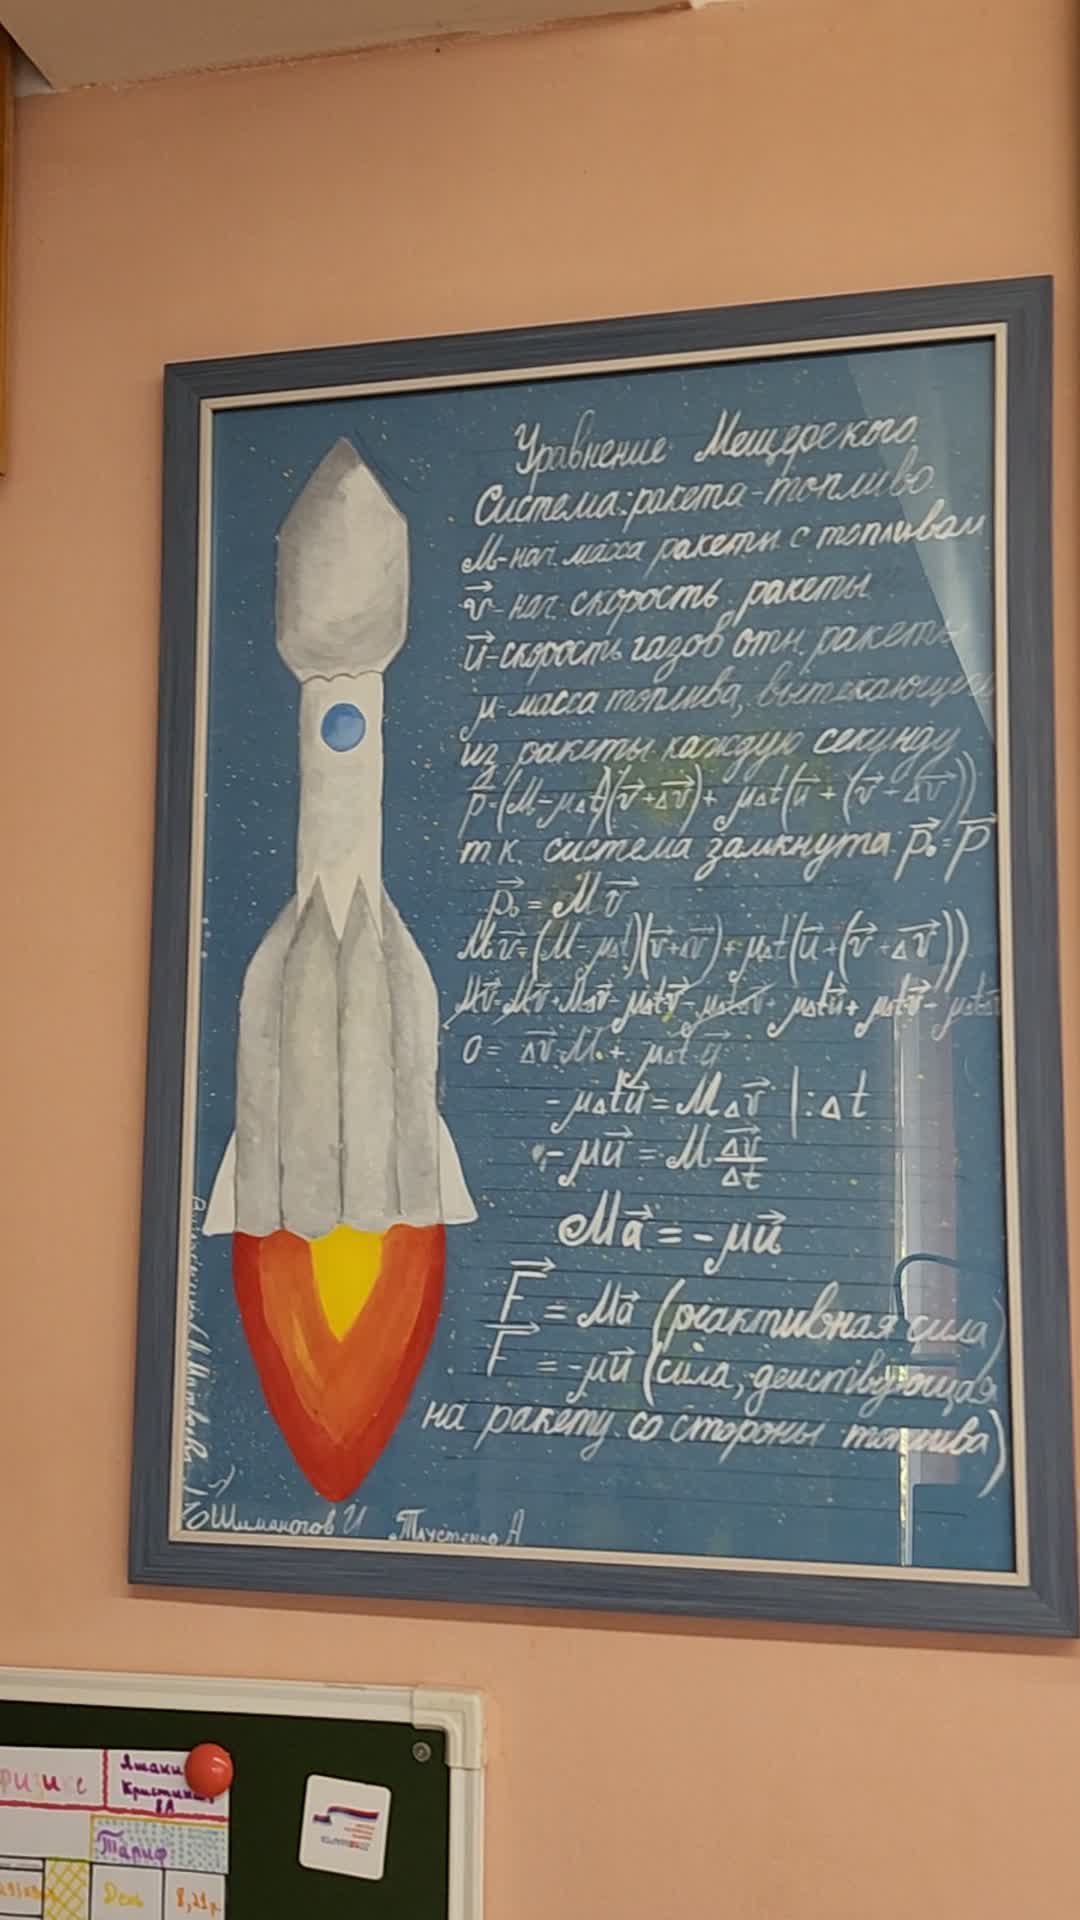 Уравнение Мещерского
Система: ракета-топливо
M-нач. масса ракеты с топливом
v⃗-нач. скорость ракеты
u⃗-скорость газов отн. ракеты
μ-масса топлива, вытекающего
из ракеты каждую секунду
p⃗=(M-μΔt)(v⃗+Δv⃗)+ μΔt(u⃗+(v⃗-Δv⃗))
т.к. система замкнута p⃗₀=p⃗
p⃗₀= Mv⃗
Mv⃗=(M-μΔt)(v⃗+Δv⃗)+μΔt(u⃗+(v⃗-Δv⃗))
Mv⃗=Mv⃗+MΔv⃗-μΔtv⃗-μΔtΔv⃗+μΔtu⃗+μΔtv⃗-μΔtΔv⃗
0= Δv⃗M+ μΔtu⃗
-μΔtu⃗=MΔv⃗ |:Δt
-μu⃗=M Δv⃗/Δt
Ma⃗=-μu⃗
F⃗=Ma⃗ (реактивная сила)
F⃗=-μu⃗ (сила, действующая
на ракету со стороны топлива)
Шиманогов И Тлустенко А
физике
Кристина
8А
Тариф
День
8,21р